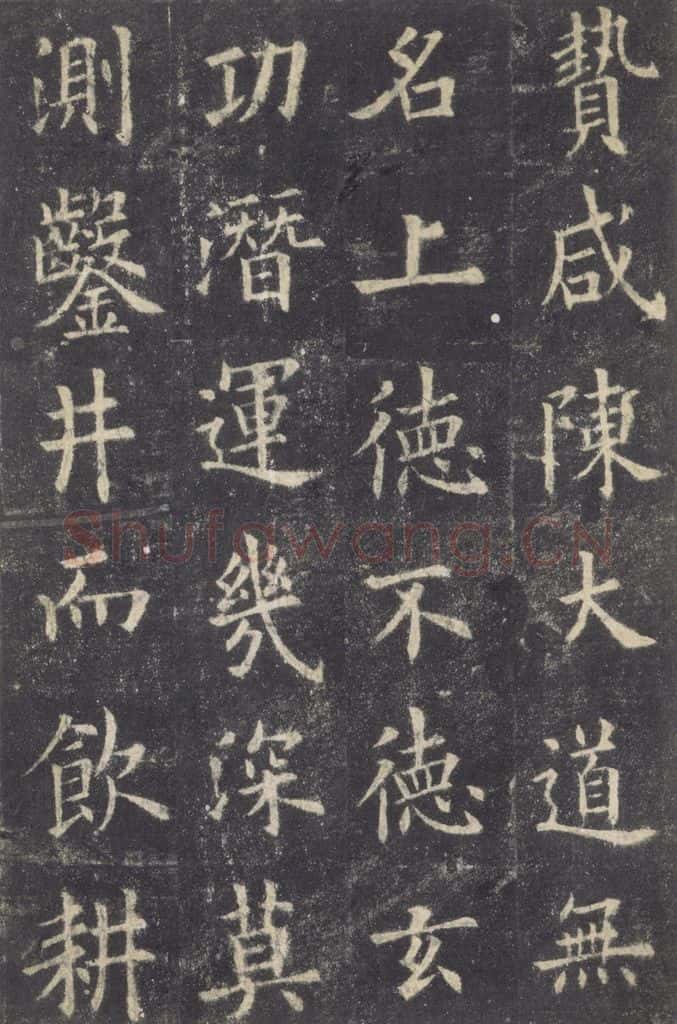 贄咸陳大道無
名上德不德玄
功潛運幾深莫
測鑿井而飲耕
Shufawang.CN